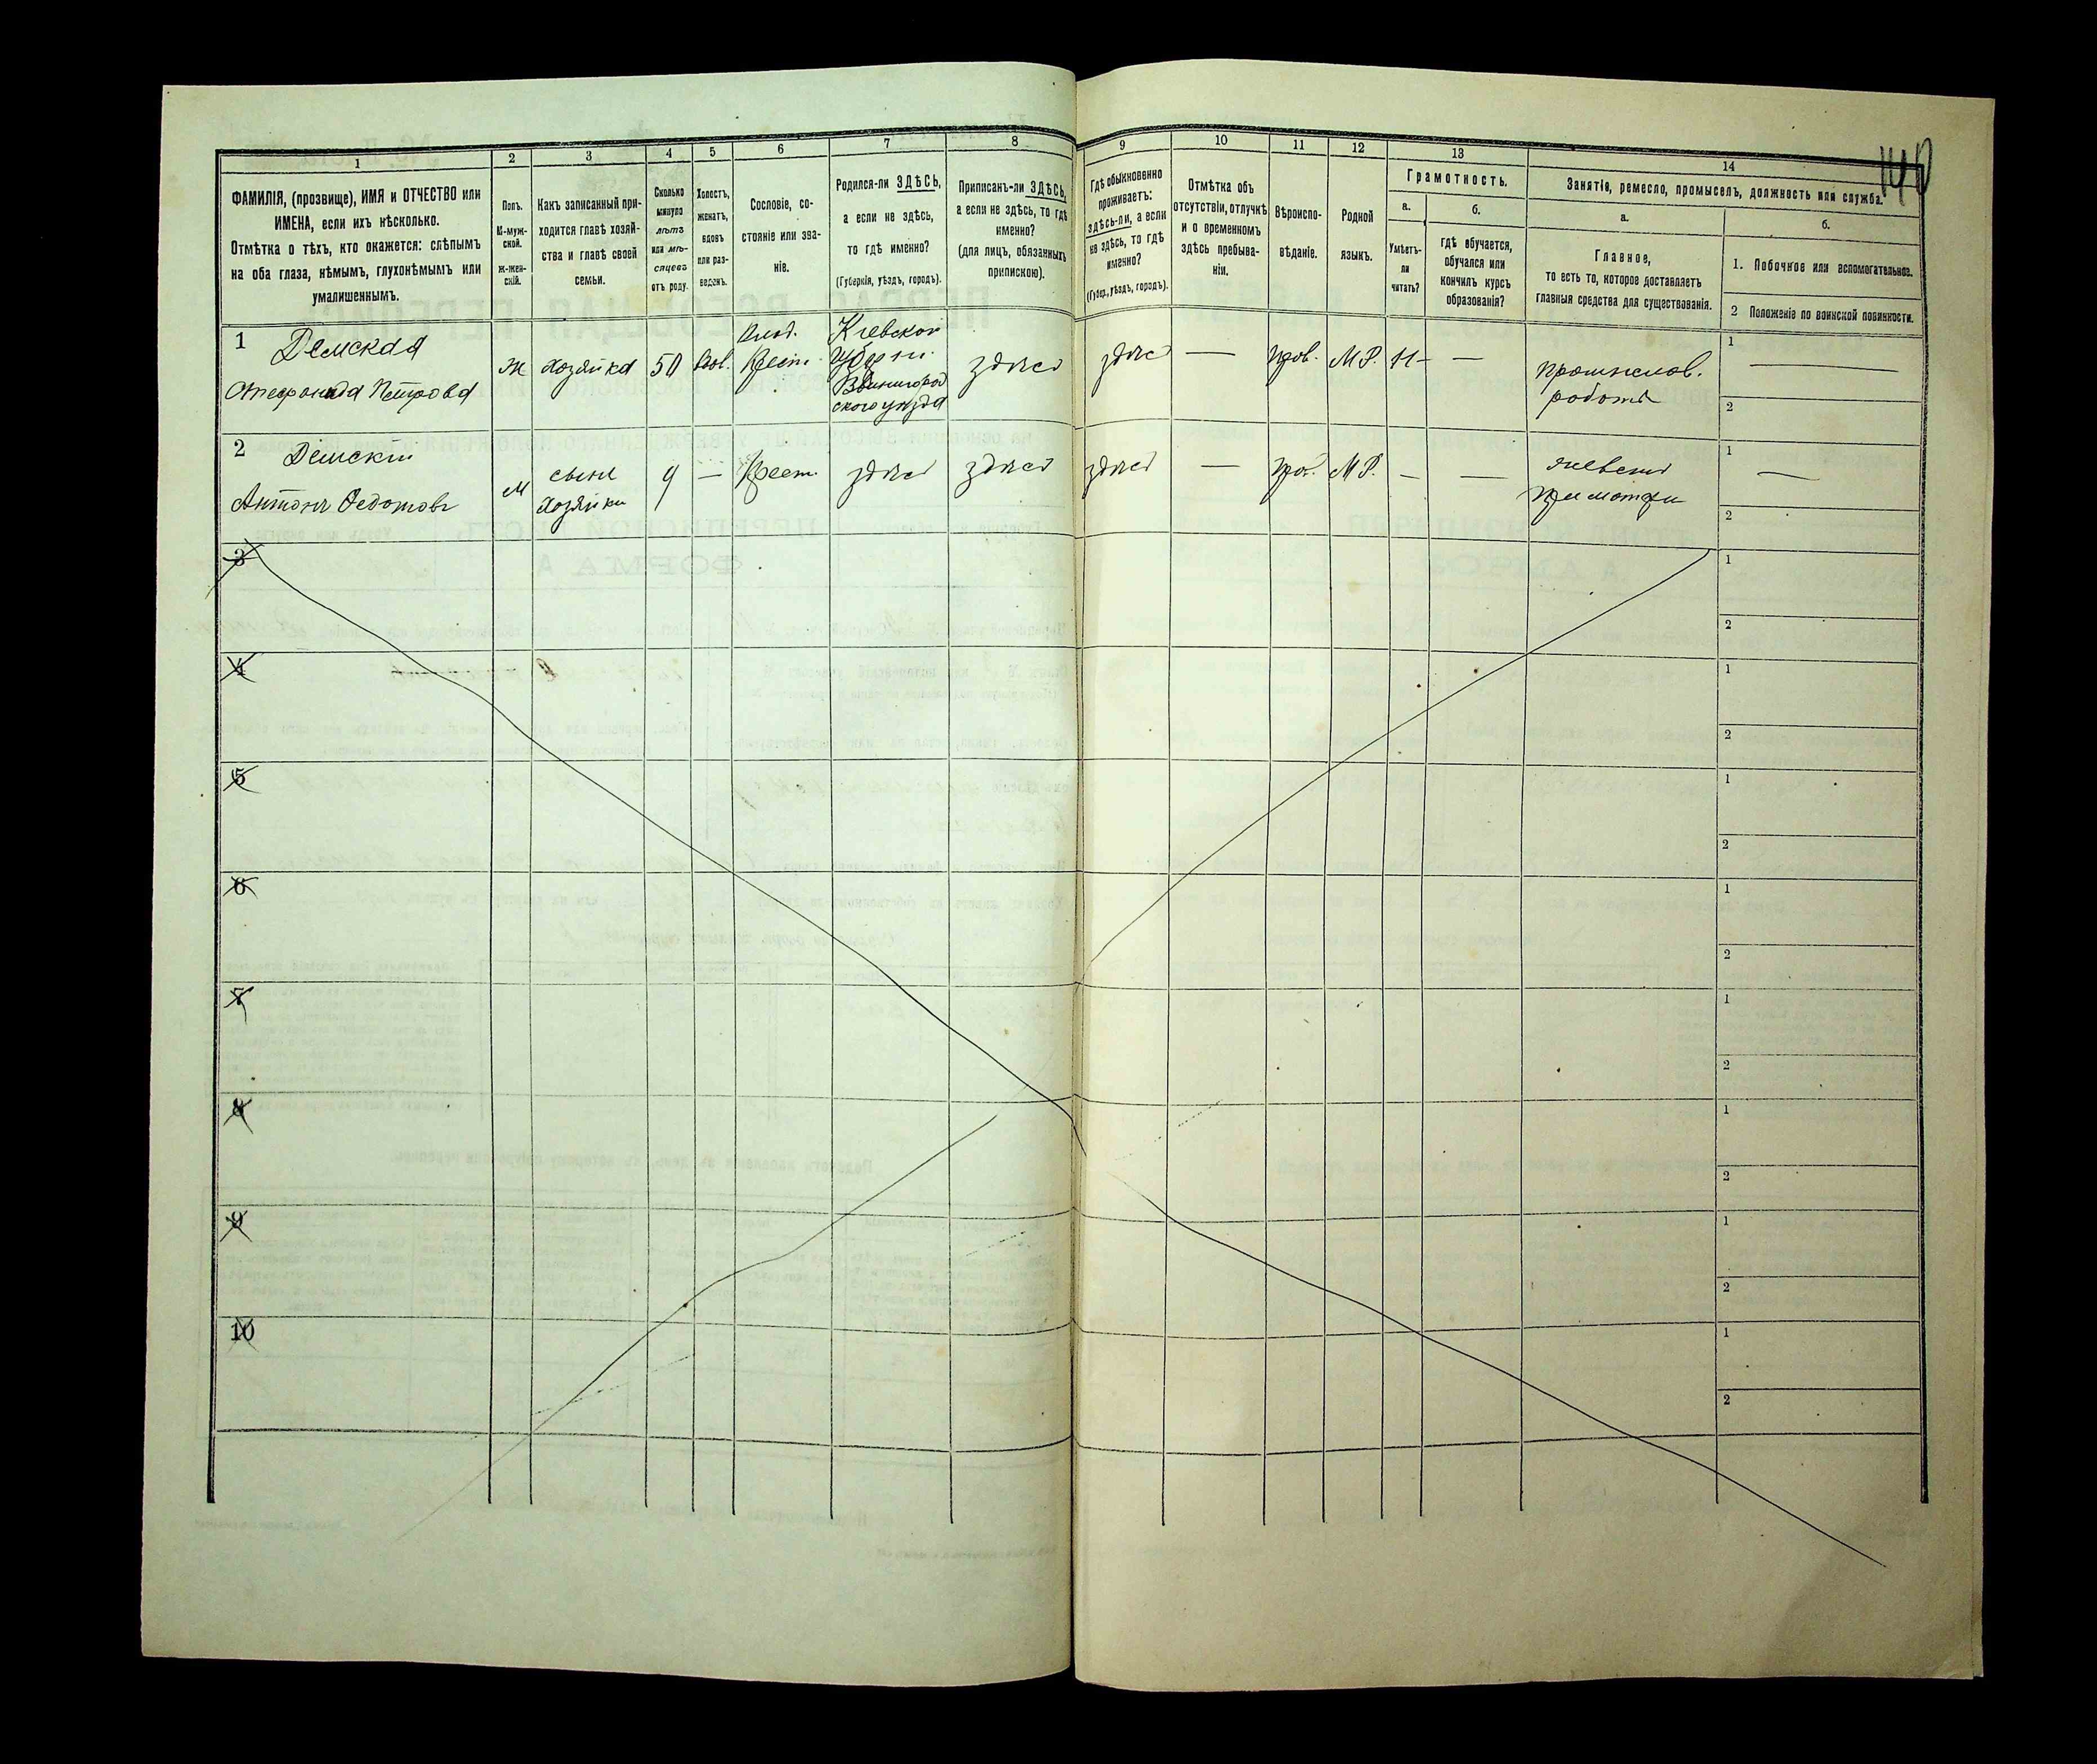 140
1
2
3
4
5
6
7
8
9
10
11
12
13
14
ФАМИЛІЯ, (прозвище), ИМЯ и ОТЧЕСТВО или
ИМЕНА, если ихъ нѣсколько.
Отмѣтка о тѣхъ, кто окажется: слѣпымъ
на оба глаза, нѣмымъ, глухонѣмымъ или
умалишеннымъ.
Полъ.
М-муж-
ской.
ж-жен-
скій.
Какъ записанный при-
ходится главѣ хозяй-
ства и главѣ своей
семьи.
Сколько
минуло
лѣтъ
или мѣ-
сяцевъ
отъ роду.
Холостъ,
женатъ,
вдовъ
или раз-
веденъ.
Сословіе, со-
стояніе или зва-
ніе.
Родился-ли ЗДѢСЬ,
а если не здѣсь,
то гдѣ именно?
(Губернія, уѣздъ, городъ).
Приписанъ-ли ЗДѢСЬ,
а если не здѣсь, то гдѣ
именно?
(для лицъ, обязанныхъ
припискою).
Гдѣ обыкновенно
проживаетъ:
здѣсь-ли, а если
не здѣсь, то гдѣ
именно?
(Губер., уѣздъ, городъ).
Отмѣтка объ
отсутствіи, отлучкѣ
и о временномъ
здѣсь пребыва-
ніи.
Вѣроиспо-
вѣданіе.
Родной
языкъ.
Грамотность.
а.
Умѣетъ-
ли
читать?
б.
гдѣ обучается,
обучался или
кончилъ курсъ
образованія?
Занятіе, ремесло, промыселъ, должность или служба.
а.
Главное,
то есть то, которое доставляетъ
главныя средства для существованія.
б.
1. Побочное или вспомогательное.
2 Положеніе по воинской повинности.
1
Демская
Стефанида Петрова
Ж
Хозяйка
50
Вдов.
Крест.
Кіевской
Губерн.
Звенигород
ского уѣзда
здѣсь
здѣсь
—
Прав.
М.Р.
—
—
1
2
2
Демскій
Антонъ Федотовъ
М
сынъ
Хозяйки
9
—
Крест.
здѣсь
здѣсь
здѣсь
—
Прав.
М.Р.
—
—
1
—
2
3
1
2
4
1
2
5
1
2
6
1
2
7
1
2
8
1
2
9
1
2
10
1
2